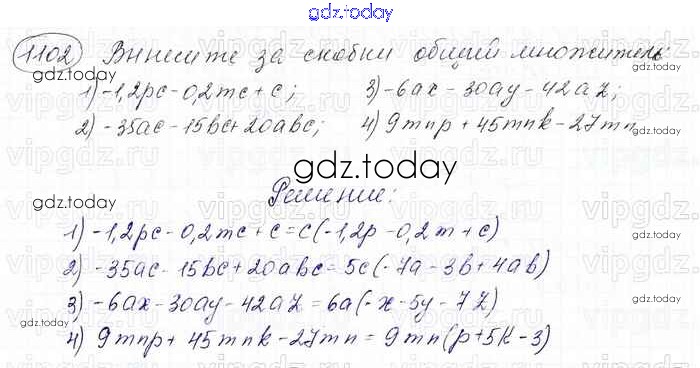 gdz.today
1102 Вынесите за скобки общий множитель:
1) -1,2pc - 0,2mc + c; 3) -6ax - 30ay - 42az;
2) -35ac - 15bc + 20abc; 4) 9mnp + 45mnk - 27mn
gdz.today
Решение:
1) -1,2pc - 0,2mc + c = c(-1,2p - 0,2m + c)
2) -35ac - 15bc + 20abc = 5c(-7a - 3b + 4ab)
3) -6ax - 30ay - 42az = 6a(-x - 5y - 7z)
4) 9mnp + 45mnk - 27mn = 9mn(p + 5k - 3)